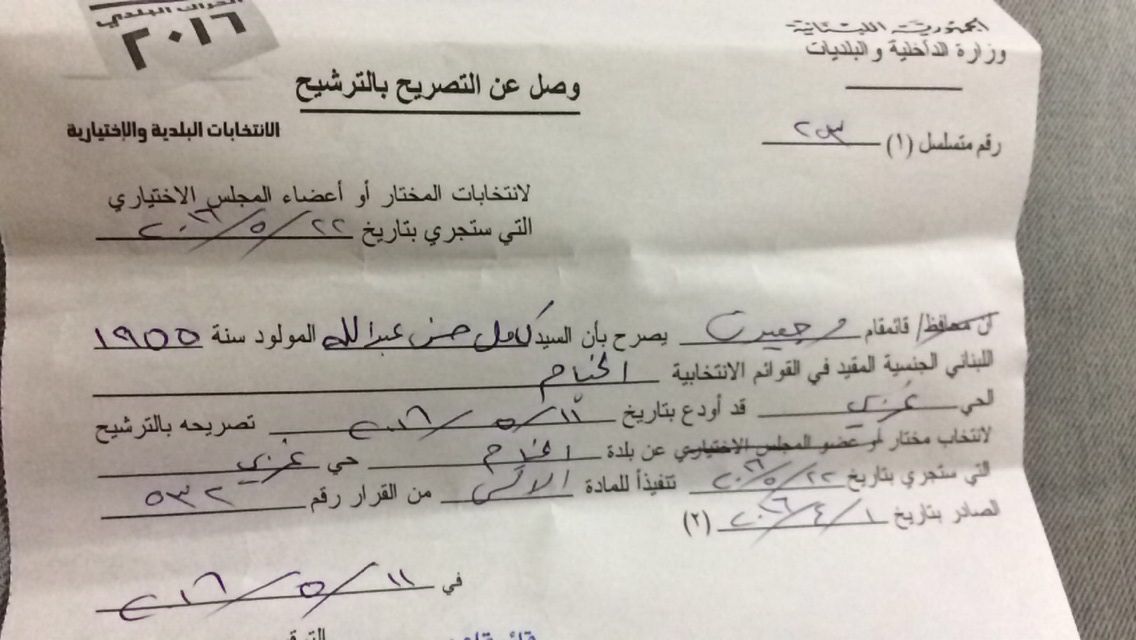 الجمهورية اللبنانية
وزارة الداخلية والبلديات
٢٠١٦
وصل عن التصريح بالترشيح
الانتخابات البلدية والإختيارية
رقم متسلسل (١) ٢
لانتخابات المختار أو أعضاء المجلس الاختياري
التي ستجري بتاريخ ٢٢/٥/٢٠١٦
ان محافظ/ قائمقام مرجعيون يصرح بأن السيد كامل حسن عبدالله المولود سنة ١٩٥٥
اللبناني الجنسية المقيد في القوائم الانتخابية الخيام
الحي غربي قد أودع بتاريخ ١١/٥/٢٠١٦ تصريحه بالترشيح
لانتخاب مختار أو عضو المجلس الاختياري عن بلدة الخيام حي غربي
التي ستجري بتاريخ ٢٢/٥/٢٠١٦ تنفيذاً للمادة من القرار رقم ٥٣٢
الصادر بتاريخ ١/٤/٢٠١٦ (٢)
في ١١/٥/٢٠١٦